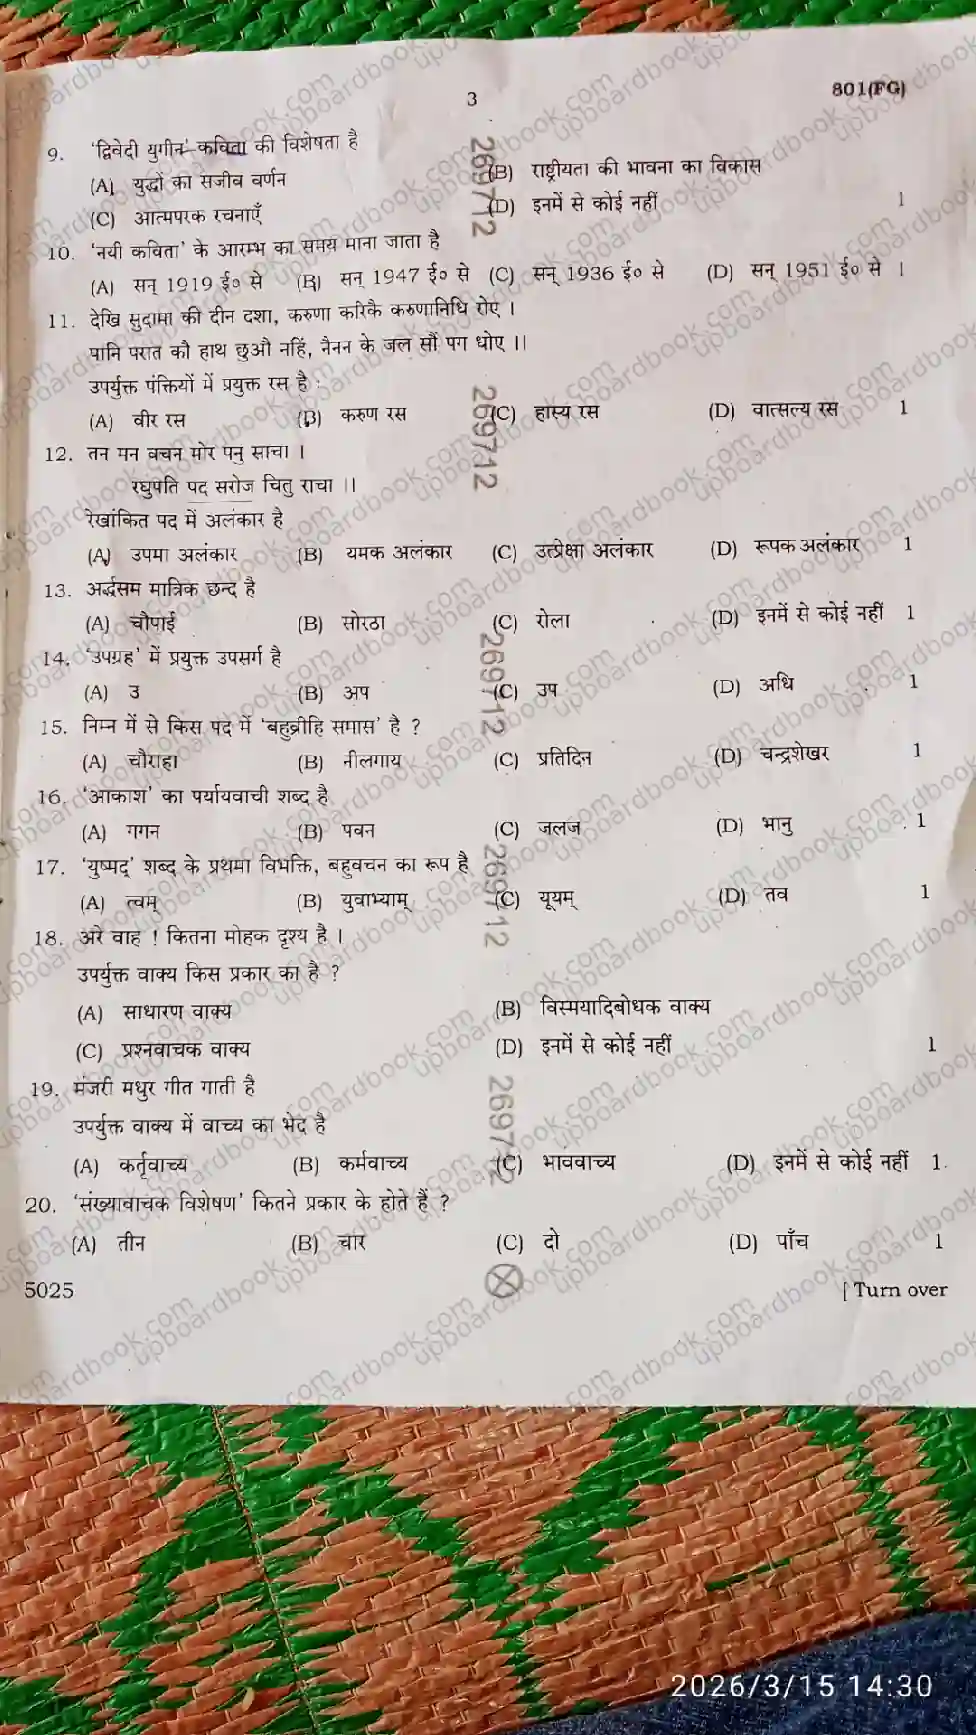 3
801(FG)
9. 'द्विवेदी युगीन' कविता की विशेषता है
(A) युद्धों का सजीव वर्णन (B) राष्ट्रीयता की भावना का विकास
(C) आत्मपरक रचनाएँ (D) इनमें से कोई नहीं 1
10. 'नयी कविता' के आरम्भ का समय माना जाता है
(A) सन् 1919 ई० से (B) सन् 1947 ई० से (C) सन् 1936 ई० से (D) सन् 1951 ई० से 1
11. देखि सुदामा की दीन दशा, करुणा करिकै करुणानिधि रोए ।
पानि परात कौ हाथ छुऔ नहिं, नैनन के जल सौं पग धोए ।।
उपर्युक्त पंक्तियों में प्रयुक्त रस है :
(A) वीर रस (B) करुण रस (C) हास्य रस (D) वात्सल्य रस 1
12. तन मन वचन मोर पनु साचा ।
रघुपति पद सरोज चितु राचा ।।
रेखांकित पद में अलंकार है
(A) उपमा अलंकार (B) यमक अलंकार (C) उत्प्रेक्षा अलंकार (D) रूपक अलंकार 1
13. अर्द्धसम मात्रिक छन्द है
(A) चौपाई (B) सोरठा (C) रोला (D) इनमें से कोई नहीं 1
14. 'उपग्रह' में प्रयुक्त उपसर्ग है
(A) उ (B) अप (C) उप (D) अधि 1
15. निम्न में से किस पद में 'बहुव्रीहि समास' है ?
(A) चौराहा (B) नीलगाय (C) प्रतिदिन (D) चन्द्रशेखर 1
16. 'आकाश' का पर्यायवाची शब्द है
(A) गगन (B) पवन (C) जलज (D) भानु 1
17. 'युष्मद्' शब्द के प्रथमा विभक्ति, बहुवचन का रूप है
(A) त्वम् (B) युवाभ्याम् (C) यूयम् (D) तव 1
18. अरे वाह ! कितना मोहक दृश्य है ।
उपर्युक्त वाक्य किस प्रकार का है ?
(A) साधारण वाक्य (B) विस्मयादिबोधक वाक्य
(C) प्रश्नवाचक वाक्य (D) इनमें से कोई नहीं 1
19. मंजरी मधुर गीत गाती है
उपर्युक्त वाक्य में वाच्य का भेद है
(A) कर्तृवाच्य (B) कर्मवाच्य (C) भाववाच्य (D) इनमें से कोई नहीं 1
20. 'संख्यावाचक विशेषण' कितने प्रकार के होते हैं ?
(A) तीन (B) चार (C) दो (D) पाँच 1
5025
[ Turn over
269712
269712
269712
269712
269712
upboardbook.com
2026/3/15 14:30